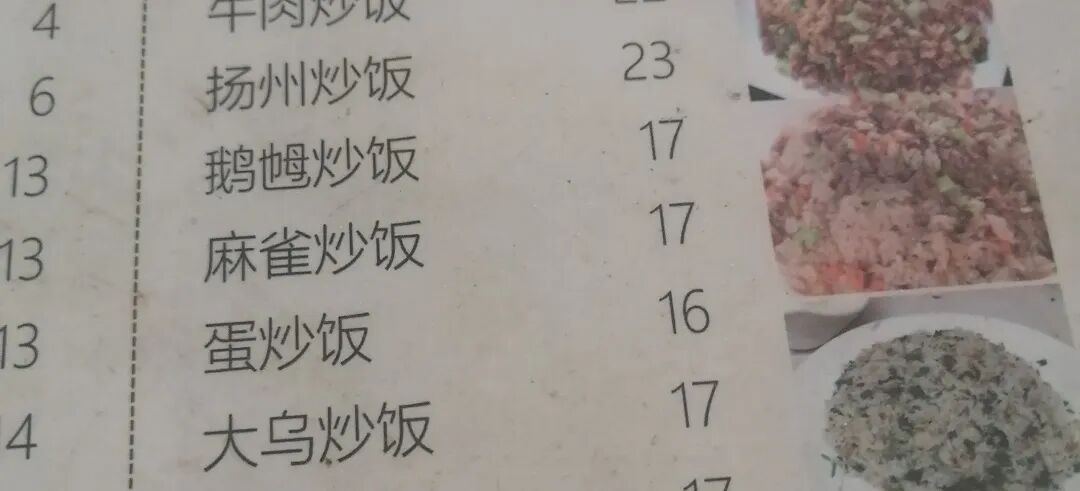 4 牛肉炒饭
6 扬州炒饭 23
13 鹅乸炒饭 17
13 麻雀炒饭 17
13 蛋炒饭 16
14 大乌炒饭 17
17